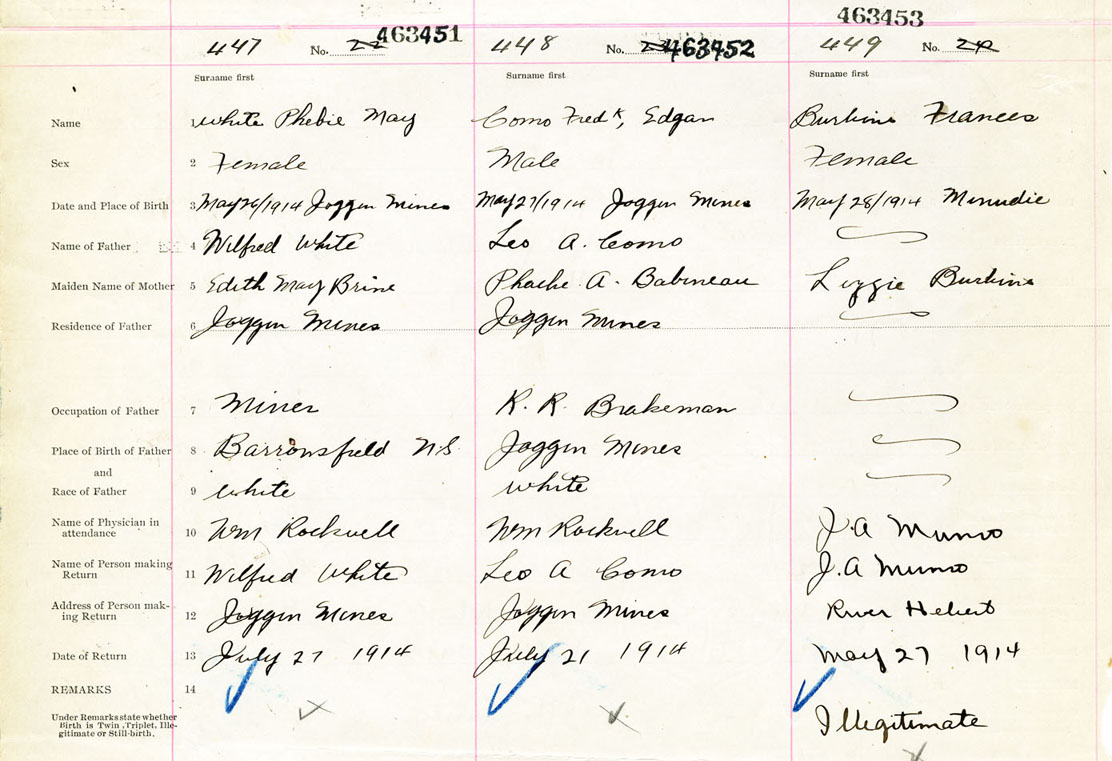 463453
447 No. 22 463451 448 No. 23 463452 449 No. 24
Surname first Surname first Surname first
Name 1 White Phebie May Como Fredk, Edgar Burkine Frances
Sex 2 Female Male Female
Date and Place of Birth 3 May 26/1914 Joggin Mines May 27/1914 Joggin Mines May 28/1914 Minudie
Name of Father 4 Wilfred White Leo A. Como
Maiden Name of Mother 5 Edith May Brine Phoebe A. Babineau Lizzie Burkine
Residence of Father 6 Joggin Mines Joggin Mines
Occupation of Father 7 Miner R. R. Brakeman
Place of Birth of Father 8 Barronsfield N.S. Joggin Mines
and
Race of Father 9 White White
Name of Physician in
attendance 10 Wm Rockwell Wm Rockwell J. A Munro
Name of Person making
Return 11 Wilfred White Leo A Como J. A Munro
Address of Person mak-
ing Return 12 Joggin Mines Joggin Mines River Hebert
Date of Return 13 July 27 1914 July 21 1914 May 27 1914
REMARKS 14
Under Remarks state whether
Birth is Twin, Triplet, Ille-
gitimate or Still-birth. Illegitimate